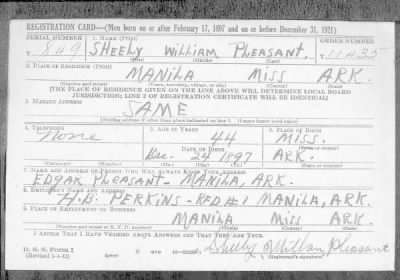 REGISTRATION CARD—(Men born on or after February 17, 1897 and on or before December 31, 1921)
SERIAL NUMBER 1. NAME (Print) ORDER NUMBER
849 SHEELY WILLIAM PLEASANT. 11435
(First) (Middle) (Last)
2. PLACE OF RESIDENCE (Print)
MANILA MISS ARK.
(Number and street) (Town, township, village, or city) (County) (State)
[THE PLACE OF RESIDENCE GIVEN ON THE LINE ABOVE WILL DETERMINE LOCAL BOARD
JURISDICTION; LINE 2 OF REGISTRATION CERTIFICATE WILL BE IDENTICAL]
3. MAILING ADDRESS
SAME
[Mailing address if other than place indicated on line 2. If same insert word same]
4. TELEPHONE 5. AGE IN YEARS 6. PLACE OF BIRTH
None 44 MISS.
DATE OF BIRTH (Town or county)
Dec. 24 1897 ARK.
(Exchange) (Number) (Mo.) (Day) (Yr.) (State or country)
7. NAME AND ADDRESS OF PERSON WHO WILL ALWAYS KNOW YOUR ADDRESS
EDGAR PLEASANT- MANILA, ARK.
8. EMPLOYER'S NAME AND ADDRESS
H.B. PERKINS - RFD #1 MANILA, ARK.
9. PLACE OF EMPLOYMENT OR BUSINESS
MANILA MISS ARK
(Number and street or R. F. D. number) (Town) (County) (State)
I AFFIRM THAT I HAVE VERIFIED ABOVE ANSWERS AND THAT THEY ARE TRUE.
D. S. S. Form 1
(Revised 1-1-42) Sheely William Pleasant